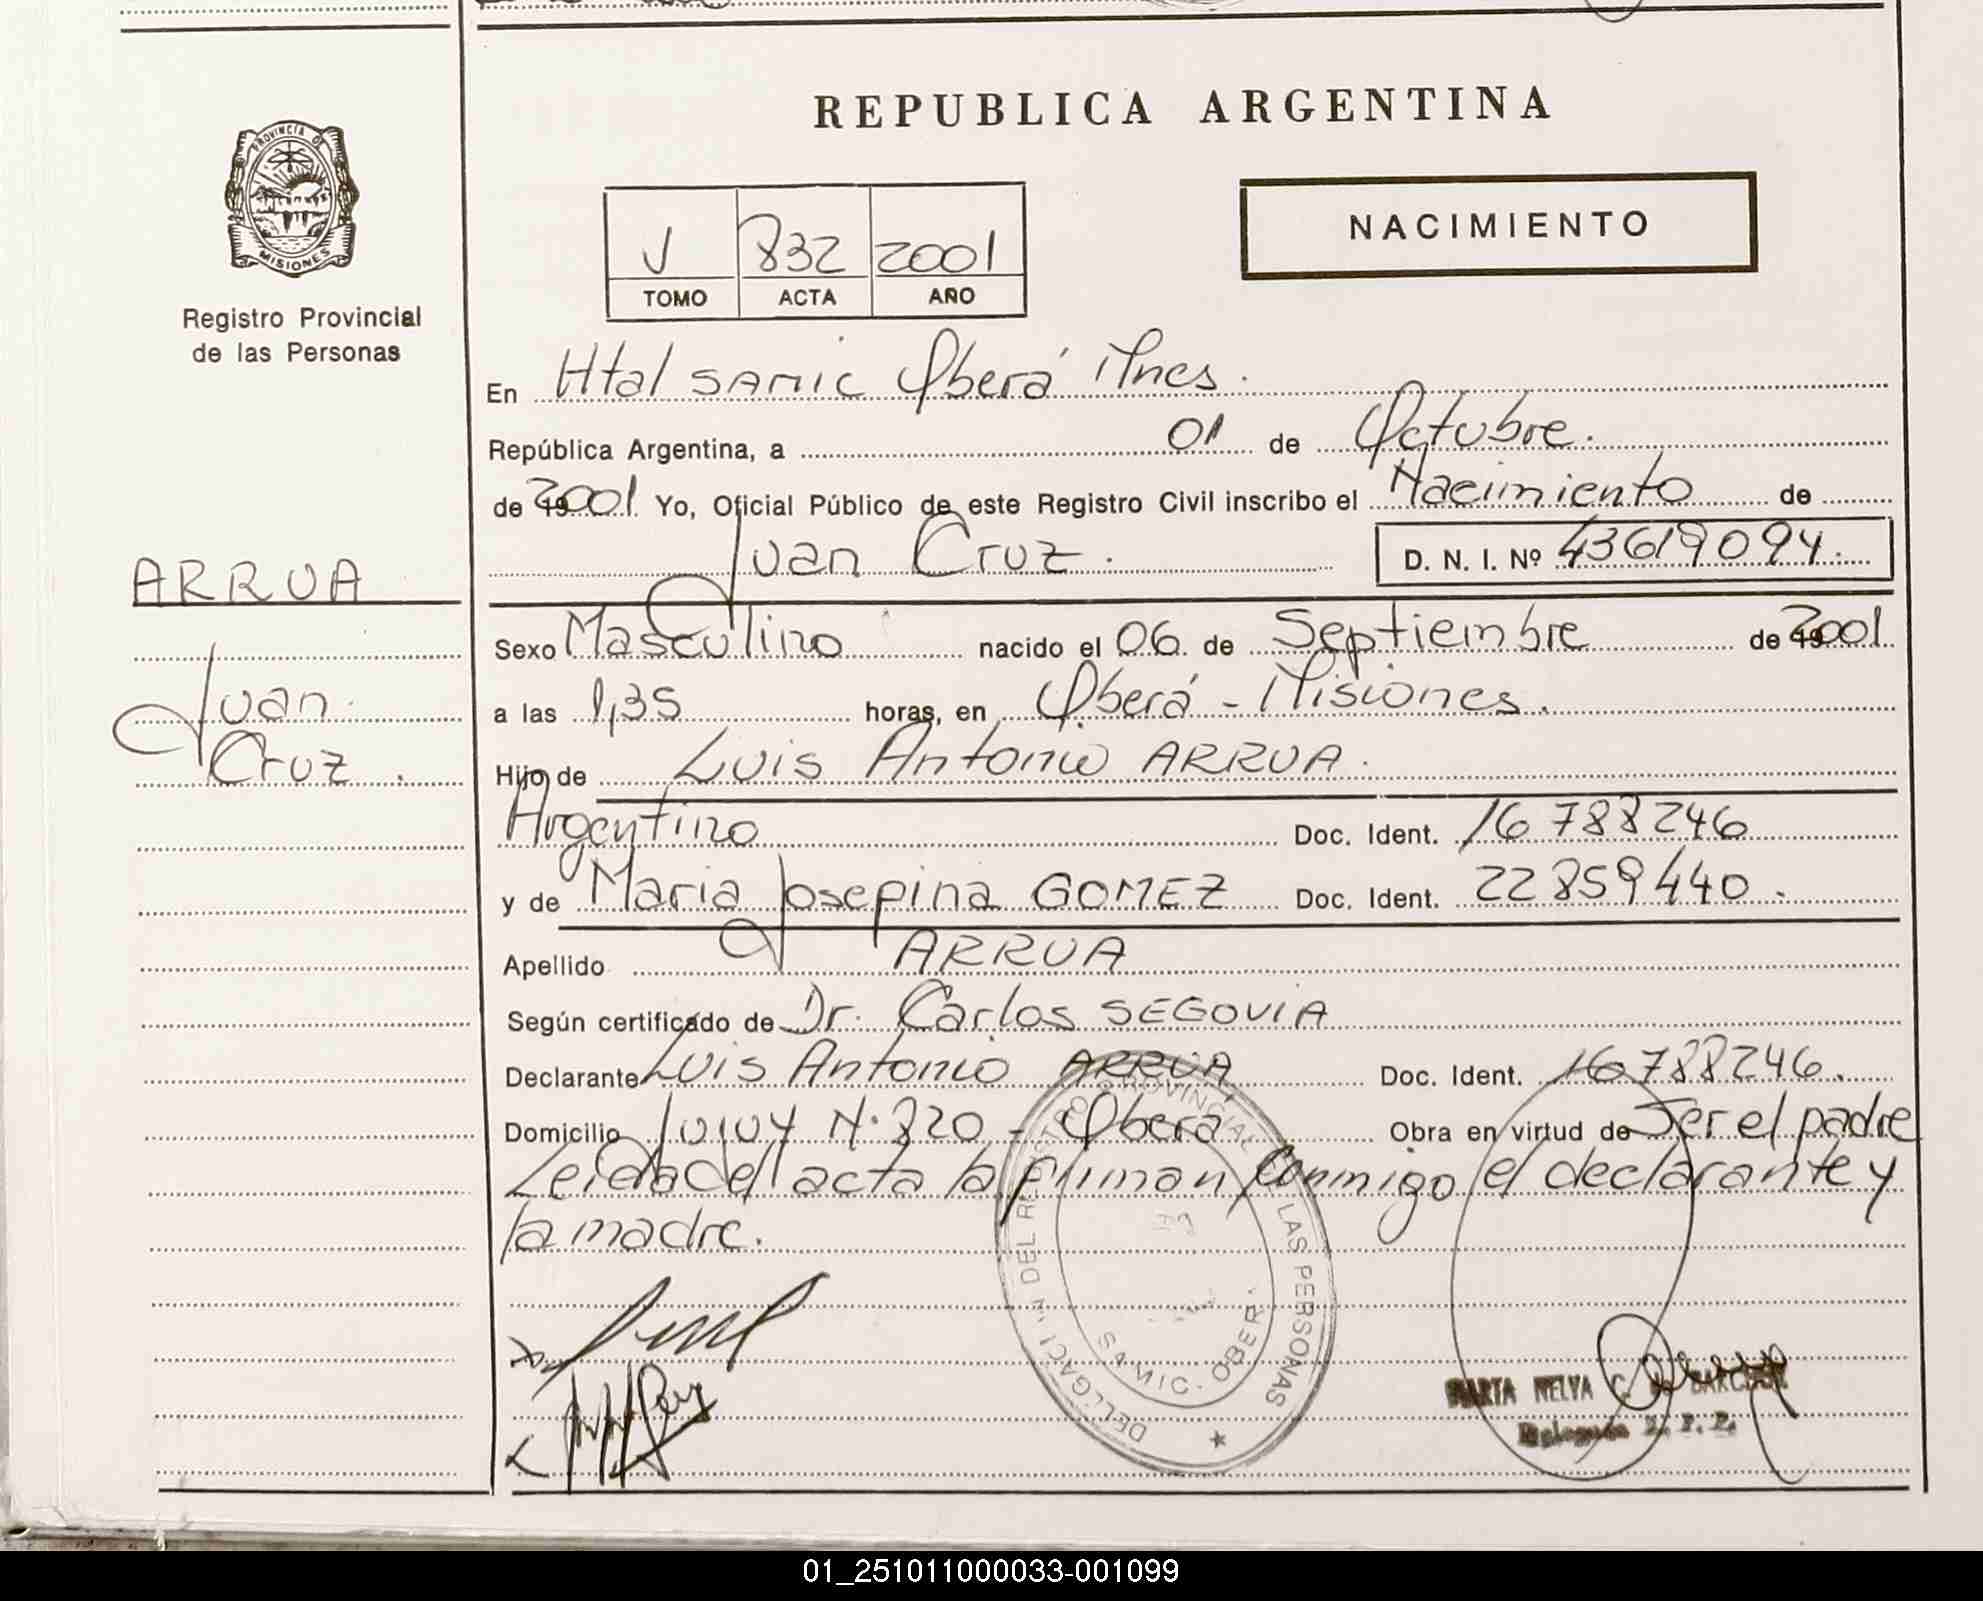 REPUBLICA ARGENTINA
PROVINCIA DE
MISIONES
Registro Provincial
de las Personas
NACIMIENTO
V 832 2001
TOMO ACTA AÑO
En Htal SAMIC Oberá Mnes.
República Argentina, a 01 de Octubre.
de 2001 Yo, Oficial Público de este Registro Civil inscribo el Nacimiento de
Juan Cruz. D. N. I. Nº 43619094.
ARRUA
Juan
Cruz.
Sexo Masculino nacido el 06 de Septiembre de 2001
a las 1,35 horas, en Oberá - Misiones.
Hijo de Luis Antonio ARRUA.
Argentino Doc. Ident. 16788246
y de Maria Josepina GOMEZ Doc. Ident. 22859440.
Apellido ARRUA
Según certificado de Dr. Carlos SEGOVIA
Declarante Luis Antonio ARRUA Doc. Ident. 16788246.
Domicilio Jujuy N° 820 - Oberá Obra en virtud de Ser el padre
Leida el acta la firman conmigo el declarante y
la madre.
REGISTRO PROVINCIAL LAS PERSONAS
SAMIC. OBER
MARTA NELVA C.
01_251011000033-001099